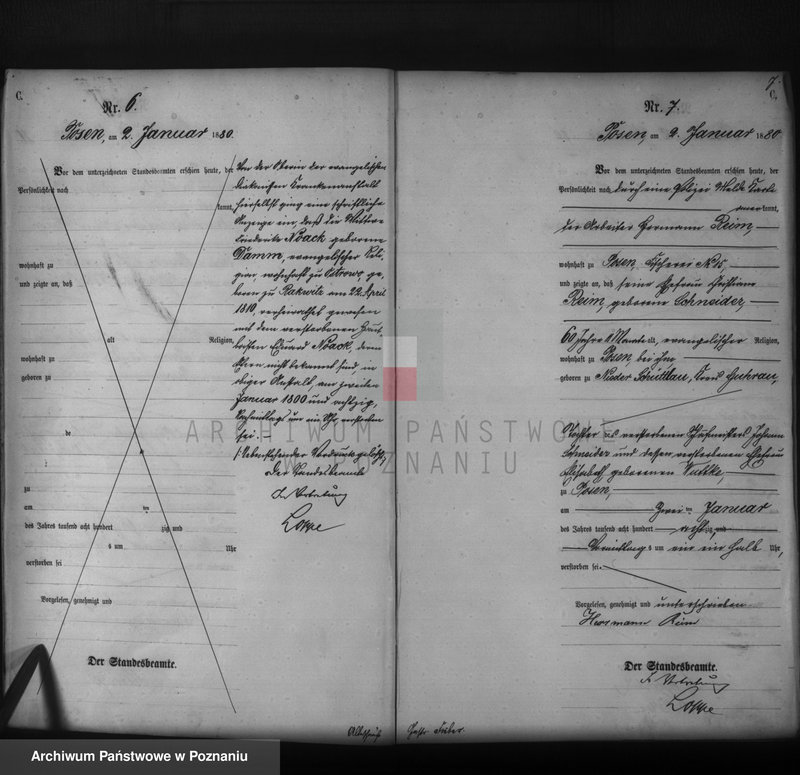 C.
Nr. 6.
Posen, am 2. Januar 1880.
Vor dem unterzeichneten Standesbeamten erschien heute, der
Persönlichkeit nach
kannt,
wohnhaft zu
und zeigte an, daß
alt Religion,
wohnhaft zu
geboren zu
de
zu
am ten
des Jahres tausend acht hundert zig und
s um Uhr
verstorben sei
Vorgelesen, genehmigt und
Der Standesbeamte.
Von der Oberin der evangelischen
Diakonissen Krankenanstalt
hierselbst ging eine schriftliche
Anzeige ein, daß die Wittwe
Friederike Noack geborene
Damm, evangelischer Reli-
gion, wohnhaft zu Ostrowo, ge-
boren zu Rakwitz am 22. April
1810, verheirathet gewesen
mit dem verstorbenen
Eduard Noack, deren
Eltern nicht bekannt sind, in
obiger Anstalt, am zweiten
Januar 1800 und achtzig,
Nachmittags um ein Uhr, verstorben
sei.
Der Standesbeamte
In Vertretung
7.
C.
Nr. 7.
Posen, am 2. Januar 1880
Vor dem unterzeichneten Standesbeamten erschien heute, der
Persönlichkeit nach durch eine Polizei Melde Karte
anerkannt,
der Arbeiter Hermann Reim,
wohnhaft zu Posen, Fischerei No
und zeigte an, daß seine Ehefrau Christiane
Reim, geborene Schneider,
60 Jahre 8 Monate alt, evangelischer Religion,
wohnhaft zu Posen, bei ihm
geboren zu Nieder Kreis Guhrau,
Tochter des verstorbenen Johann
Schneider und dessen verstorbenen Ehefrau
Elisabeth geborenen Wuttke,
zu Posen,
am Zwei ten Januar
des Jahres tausend acht hundert achtzig und
Vormittags um ein ein halb Uhr,
verstorben sei.
Vorgelesen, genehmigt und unterschrieben
Hermann Reim
Der Standesbeamte.
In Vertretung
ARCHIWUM PAŃSTWOWE
W POZNANIU
Archiwum Państwowe w Poznaniu